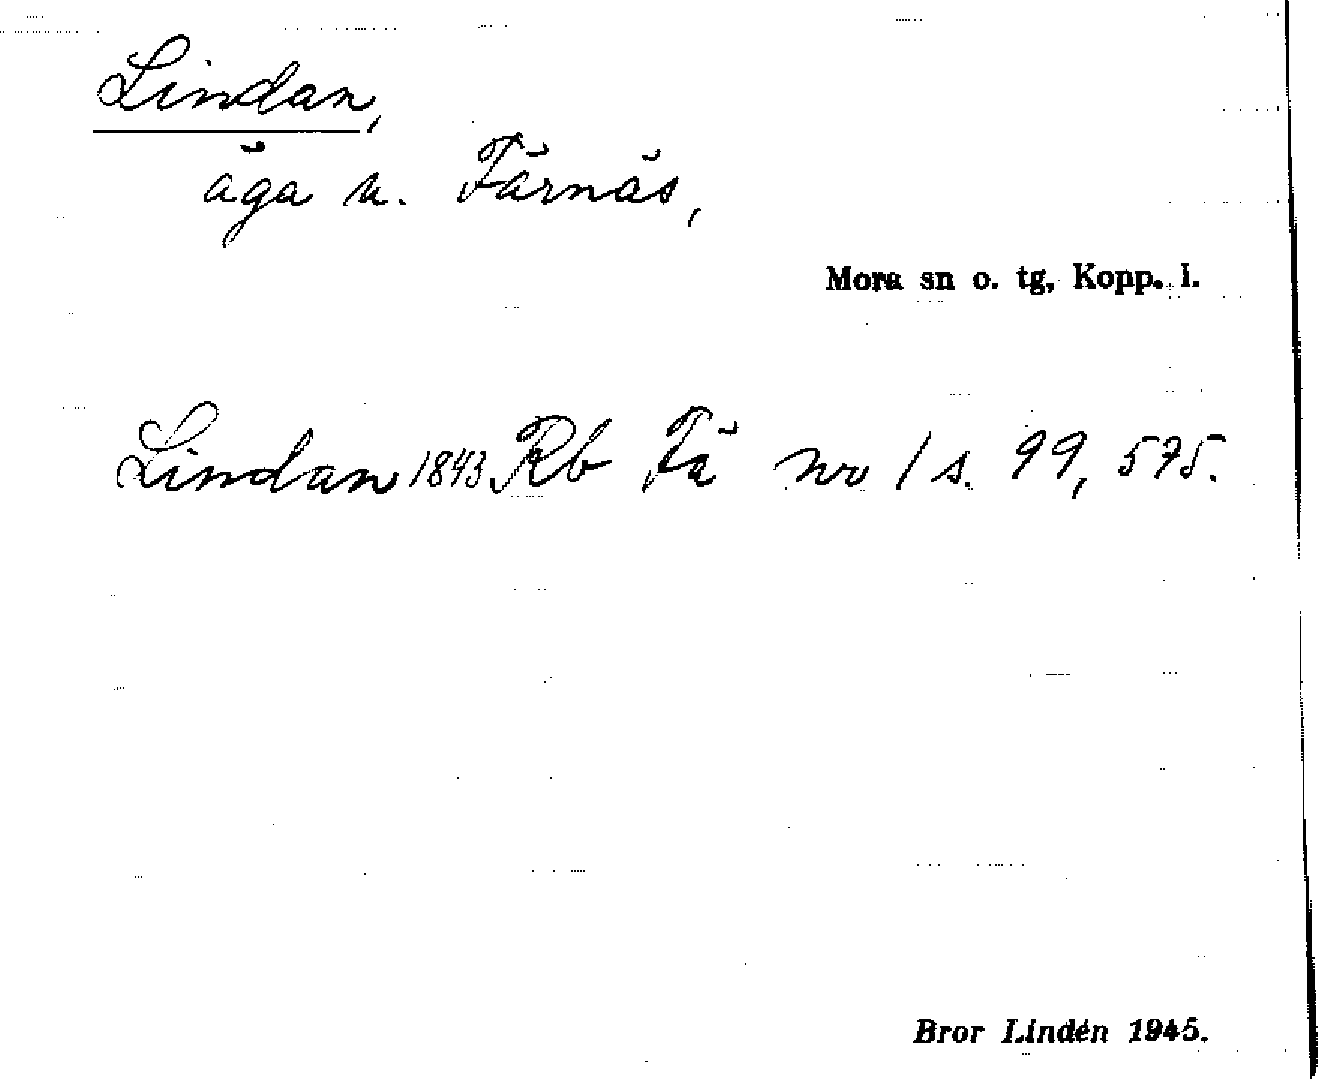 Lindan,
äga u. Färnäs,
Mora sn o. tg, Kopp. l.
Lindan 1843 Rb Fä nr 1 s. 99, 575.
Bror Lindén 1945.